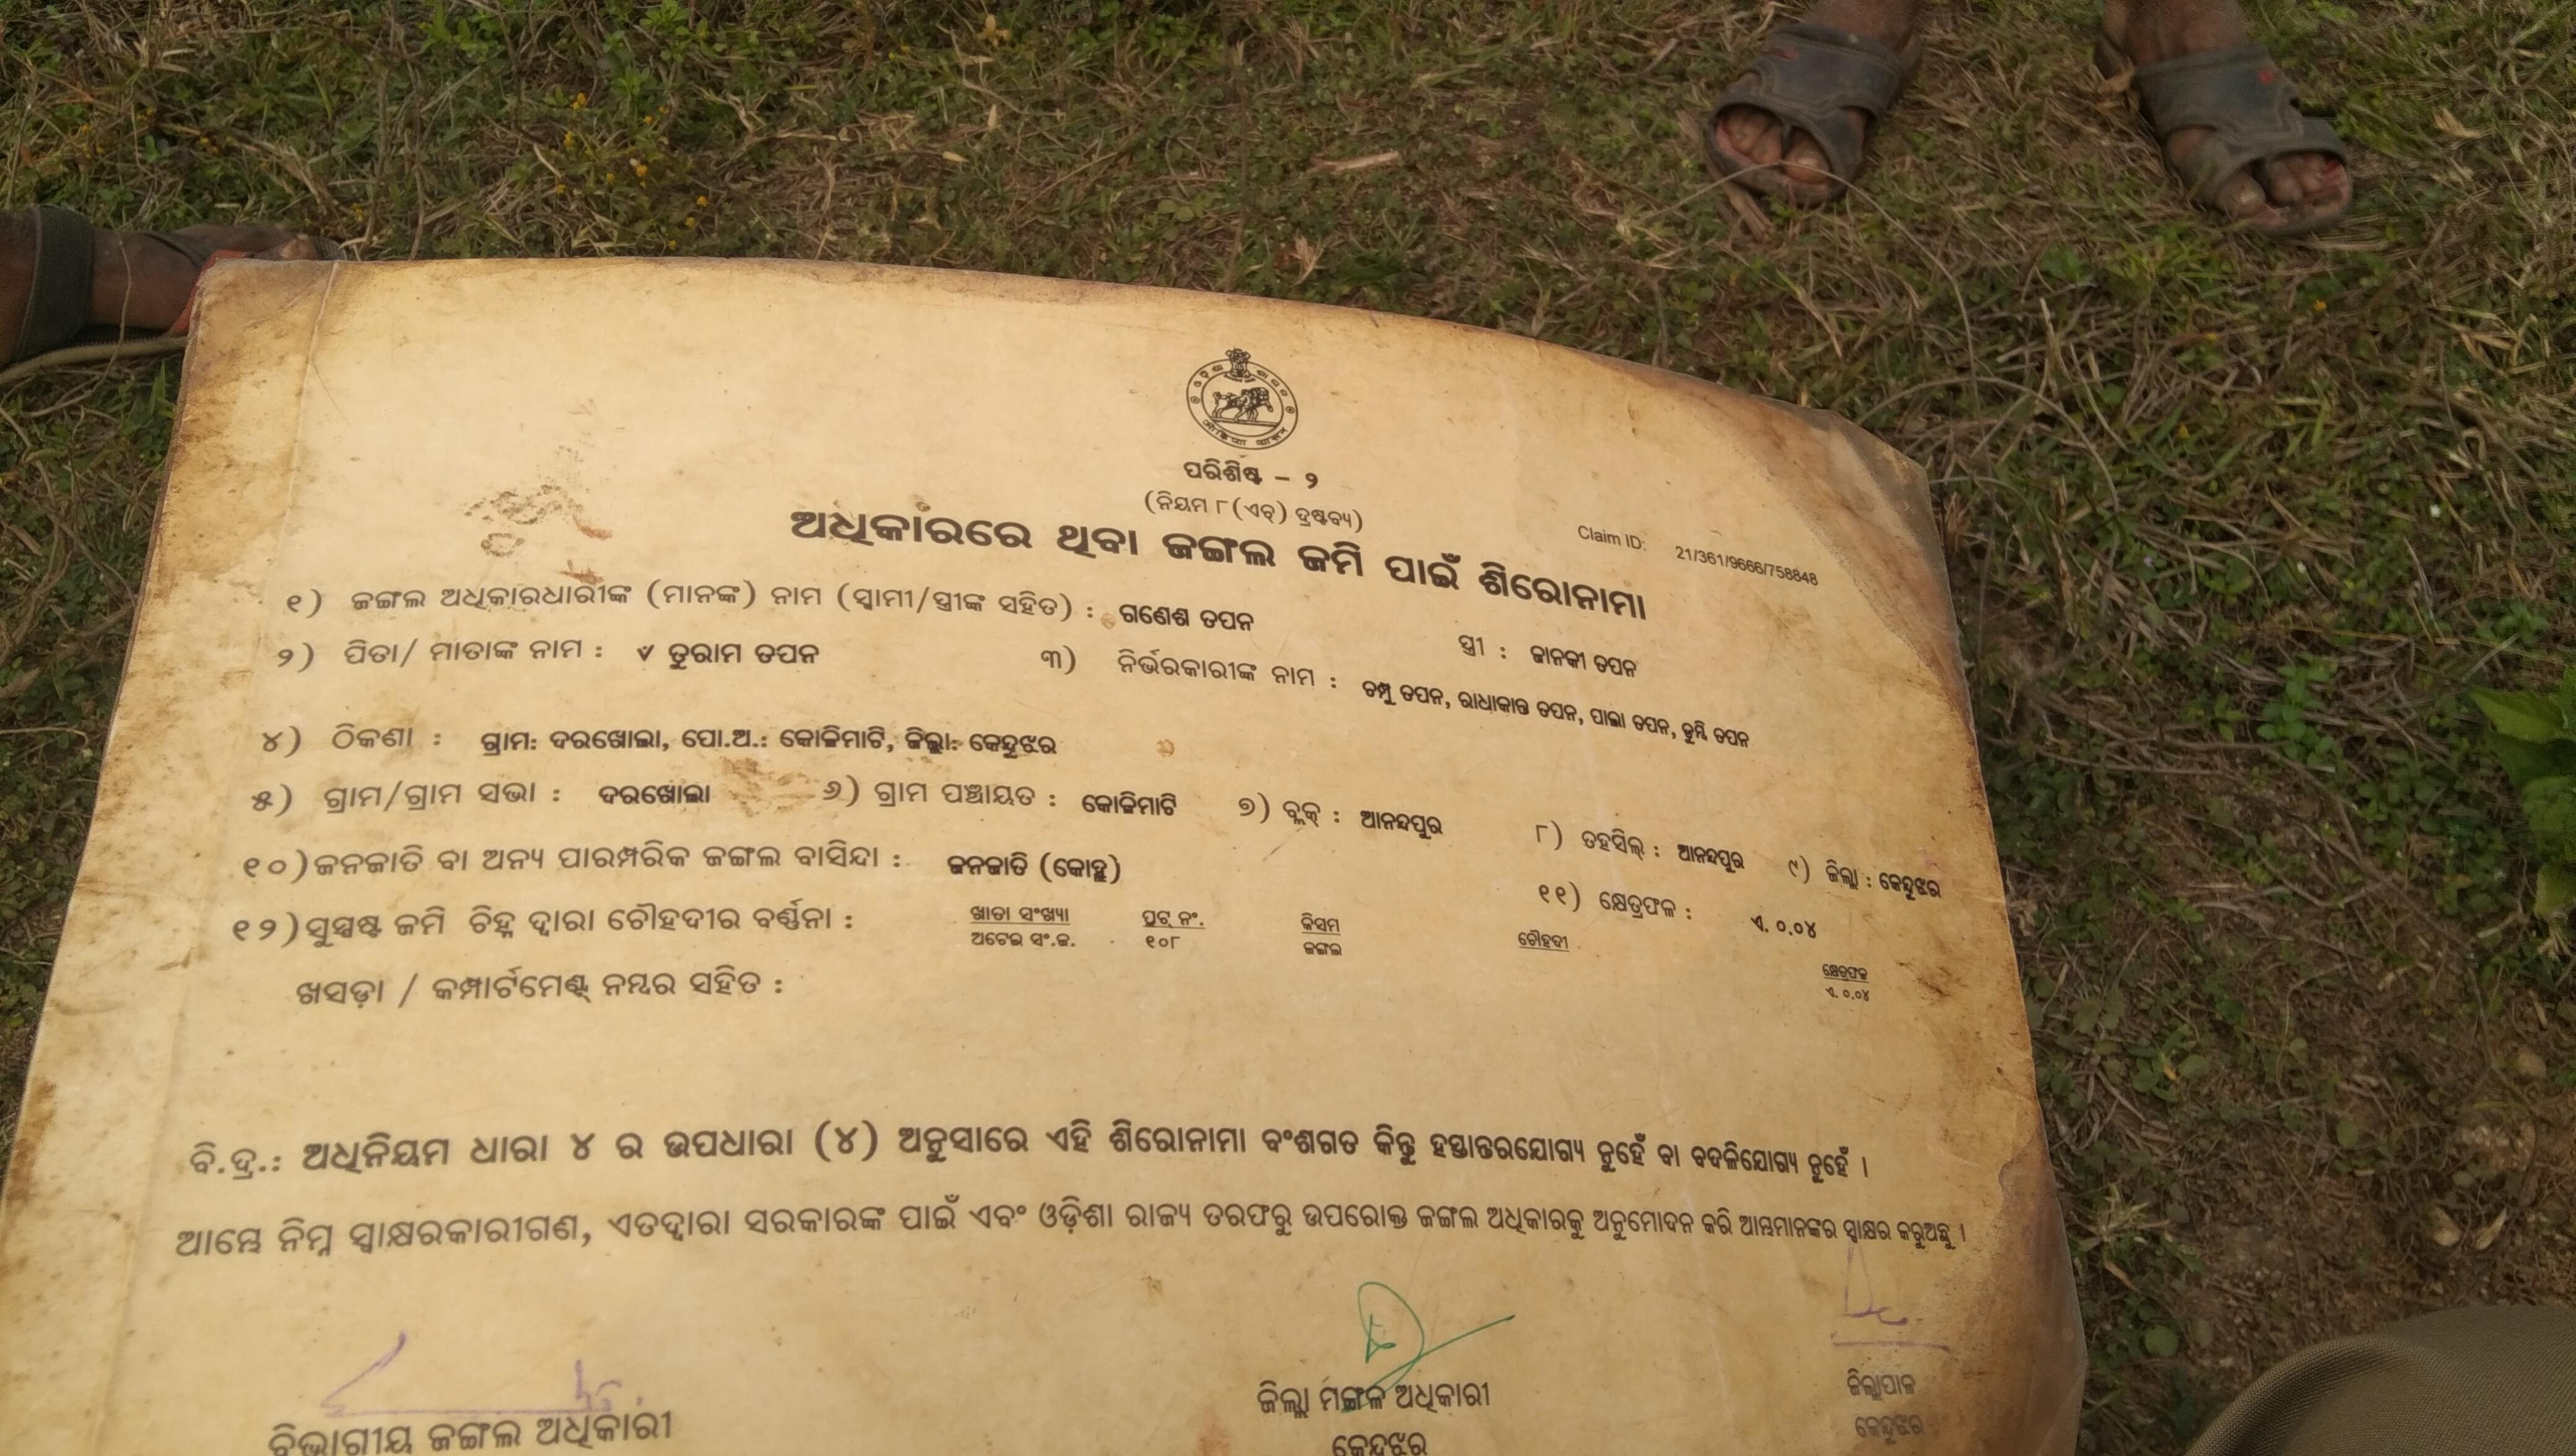 ପରିଶିଷ୍ଟ - ୨
(ନିୟମ ୮(ଏଚ୍) ଦ୍ରଷ୍ଟବ୍ୟ)
ଅଧିକାରରେ ଥିବା ଜଙ୍ଗଲ ଜମି ପାଇଁ ଶିରୋନାମା
Claim ID: 21/361/9666/758848
୧) ଜଙ୍ଗଲ ଅଧିକାରଧାରୀଙ୍କ (ମାନଙ୍କ) ନାମ (ସ୍ୱାମୀ/ସ୍ତ୍ରୀଙ୍କ ସହିତ) : ଗଣେଶ ତପନ ସ୍ତ୍ରୀ : ଜାନକୀ ତପନ
୨) ପିତା/ ମାତାଙ୍କ ନାମ : ୰ ତୁରାମ ତପନ ୩) ନିର୍ଭରକାରୀଙ୍କ ନାମ : ଚମ୍ପୁ ତପନ, ରାଧାକାନ୍ତ ତପନ, ପାଲା ତପନ, ତପନ
୪) ଠିକଣା : ଗ୍ରାମ: ଦରଖୋଲା, ପୋ.ଅ.: କୋଳିମାଟି, ଜିଲ୍ଲା: କେନ୍ଦୁଝର
୫) ଗ୍ରାମ/ଗ୍ରାମ ସଭା : ଦରଖୋଲା ୬) ଗ୍ରାମ ପଞ୍ଚାୟତ : କୋଳିମାଟି ୭) ବ୍ଲକ୍ : ଆନନ୍ଦପୁର ୮) ତହସିଲ୍ : ଆନନ୍ଦପୁର ୯) ଜିଲ୍ଲା : କେନ୍ଦୁଝର
୧୦) ଜନଜାତି ବା ଅନ୍ୟ ପାରମ୍ପରିକ ଜଙ୍ଗଲ ବାସିନ୍ଦା : ଜନଜାତି (କୋହ୍ଲ) ୧୧) କ୍ଷେତ୍ରଫଳ : ଏ. ୦.୦୪
୧୨) ସୁସ୍ପଷ୍ଟ ଜମି ଚିହ୍ନ ଦ୍ୱାରା ଚୌହଦୀର ବର୍ଣ୍ଣନା : ଖାତା ସଂଖ୍ୟା ପ୍ଲଟ୍ ନଂ. କିସମ ଚୌହଦୀ କ୍ଷେତ୍ରଫଳ
ଅଟେଇ ସଂ.ଜ. ୧୦୮ ଜଙ୍ଗଲ ଏ. ୦.୦୪
ଖସଡ଼ା / କମ୍ପାର୍ଟମେଣ୍ଟ୍ ନମ୍ବର ସହିତ :
ବି.ଦ୍ର.: ଅଧିନିୟମ ଧାରା ୪ ର ଉପଧାରା (୪) ଅନୁସାରେ ଏହି ଶିରୋନାମା ବଂଶଗତ କିନ୍ତୁ ହସ୍ତାନ୍ତରଯୋଗ୍ୟ ନୁହେଁ ବା ବଦଳିଯୋଗ୍ୟ ନୁହେଁ ।
ଆମ୍ଭେ ନିମ୍ନ ସ୍ୱାକ୍ଷରକାରୀଗଣ, ଏତଦ୍ୱାରା ସରକାରଙ୍କ ପାଇଁ ଏବଂ ଓଡ଼ିଶା ରାଜ୍ୟ ତରଫରୁ ଉପରୋକ୍ତ ଜଙ୍ଗଲ ଅଧିକାରକୁ ଅନୁମୋଦନ କରି ଆମ୍ଭମାନଙ୍କର ସ୍ୱାକ୍ଷର କରୁଅଛୁ ।
ବିଭାଗୀୟ ଜଙ୍ଗଲ ଅଧିକାରୀ
ଜିଲ୍ଲା ମଙ୍ଗଳ ଅଧିକାରୀ
କେନ୍ଦୁଝର
ଜିଲ୍ଲାପାଳ
କେନ୍ଦୁଝର